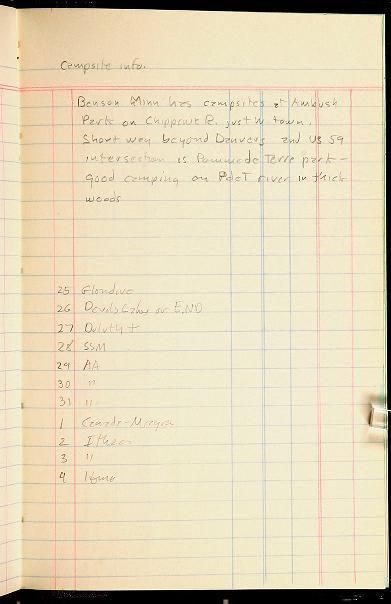 Campsite info.
Benson Minn has campsites at Ambush
Park on Chippewa R. just W town.
Short way beyond Danvers and US 59
intersection is Pomme de Terre park -
good camping on PdeT river in thick
woods
25 Glendive
26 Devils Lake or E. ND
27 Duluth +
28 SSM
29 AA
30 "
31 "
1 Canada-
2 Ithaca
3 "
4 Home